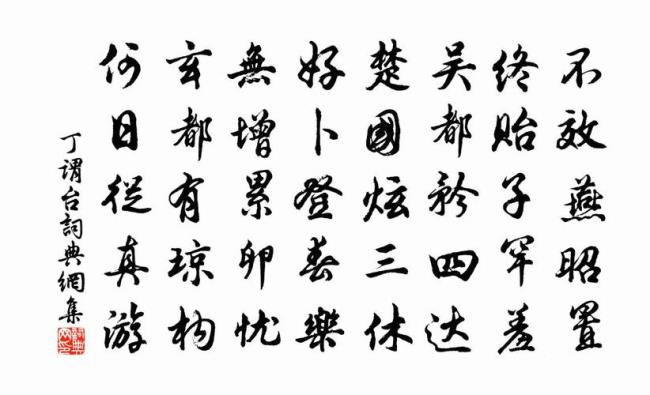 不效燕昭置
终贻子罕羞
吴都矜四达
楚國炫三休
好卜登春樂
無增累卵忧
玄都有琼构
何日從真游
丁谓台詞典網集